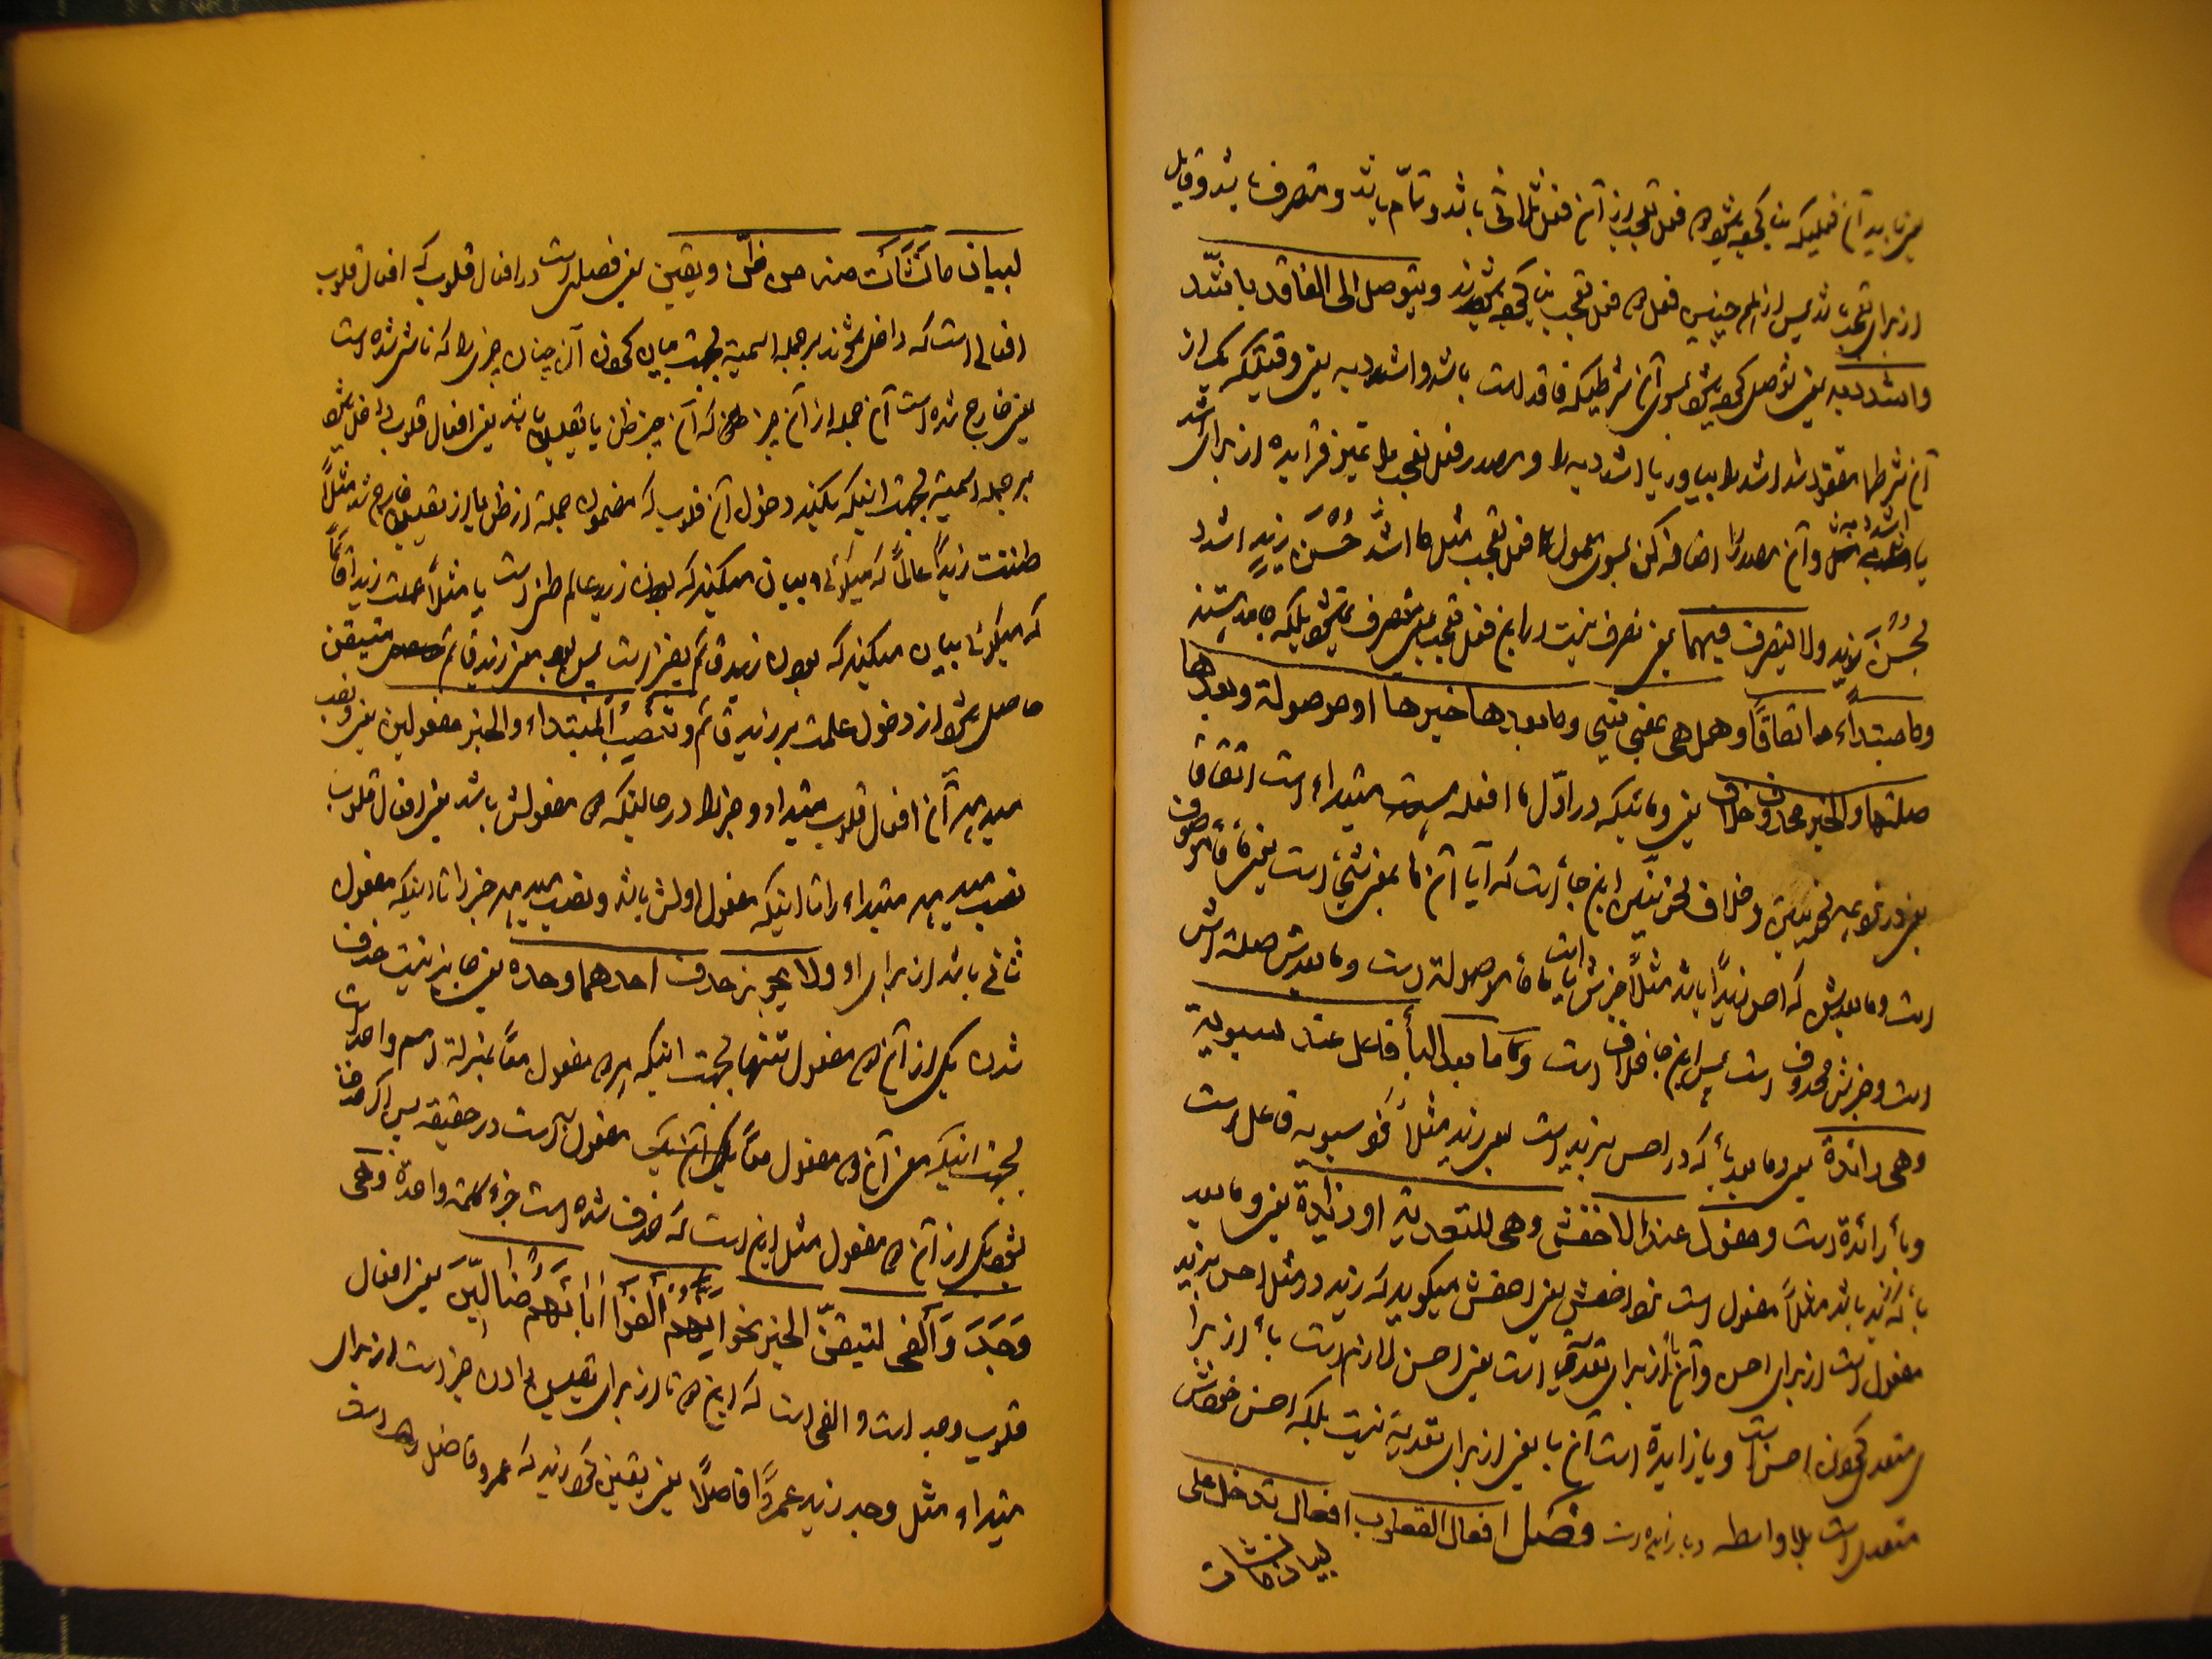 یعنی باید آن فعلیکه بنا کرده میشود فعل تعجب از آن فعل ثلاثی باشد و تامّ باشد و متصرف باشد و قابل
از برای تعجب باشد پس از این چنین فعل فعل تعجب بنا کرده میشود و یتوصل الی الفاقد باشدّ
واشدد به یعنی توصل کرده میشود بسوی آن شرطیکه فاقد است باشد و اشدد به یعنی وقتیکه یک از
آن شرطها مفقود شد اشد را بیاور یا اشدد به را و مصدر فعل تعجب را تمیز قرار بده از برای اشد
یا اشدد به و آن مصدر را اضافه کن بسوی معمول فعل تعجب مثل ما اشدّ حُسنَ زیدٍ اشدد
بحُسنِ زیدٍ ولا یتصرف فیهما یعنی تصرف نیست در این فعل تعجب یعنی متصرف نمیشود بلکه جامد هستند
وما مبتداء اتفاقاً وهل هی بمعنی شیء وما بعدها خبرها او موصولة وبعدها
صلتها والخبر محذوف خلاف یعنی و مائیکه در اوّل ما افعله هست مبتداء است اتفاقا
یعنی در نزد همه نحویین و خلاف نحویین این جا است که آیا آن ما بمعنی شیء است
است وما بعدش که احسن زیداً باشد مثلاً خبرش است یا ما موصولة است وما بعدش صلة اش
است و خبرش محذوف است پس این جا خلاف است وما بعد البأ فاعل عند سیبویه
وهی زائدة یعنی وما بعد بأ که در احسن بزید است یعنی زید مثلاً نحو سیبویه فاعل است
وبأ زائدة است ومفعول عند الاخفش وهی للتعدیة او زایدة یعنی وما بعد
بأ که زید باشد مثلاً مفعول است نزد اخفش یعنی اخفش میگوید که زید در مثل احسن بزید
مفعول است از برای احسن و آن بأ از برای تعدیه است یعنی احسن لازم است بأ از برا
ی متعدی کردن احسن است و یا زایدة است آن با یعنی از برای تعدیة نیست بلکه احسن خودش
متعدی است بلا واسطه و با زایده است فصل افعال القلوب افعال تدخل علی
لبیان ما نشأت
لبیان ما نشأت منه من ظنّ ویقین یعنی فصل است در افعال قلوب که افعال قلوب
افعالی است که داخل میشوند بر جمله اسمیة بجهت بیان کردن آن چنان چیزی را که ناشی شده است
یعنی خارج شده است آن جمله از آن چیز که آن چیز ظن یا یقین باشد یعنی افعال قلوب داخل میشود
بر جمله اسمیة بجهت اینکه بکند دخول آن قلوب که مضمون جملة از ظن یا از یقین خارج شد مثلاً
ظننت زیداً عالماً که میگوئی بیان میکند که بودن زید عالم ظنی است یا مثلاً علمت زیداً قائماً
که میگوئی بیان میکند که بودن زید قائم یقینی است پس معنی زید قائم متیقن
حاصل میشود از دخول علمت بر زید قائم وتنصب المبتداء والخبر مفعولین یعنی ونصب
میدهد آن افعال قلوب مبتداء وخبر را در حالتیکه مفعولش باشد یعنی افعال قلوب
نصب میدهد مبتداء را تا اینکه مفعول اولش باشد ونصب میدهد خبر را تا اینکه مفعول
ثانی باشد از برای او ولا یجوز حذف احدهما وحده یعنی جایز نیست حذف
شدن یکی از آن دو مفعول تنها بجهت اینکه این دو مفعول معاً بمنزلة اسم واحد است
بجهت اینکه معنی آن دو مفعول معاً مفعول به است در حقیقة پس اگر حذف
بشود یکی از آن دو مفعول مثل این است که حذف شده است جزء کلمة واحدة وهی
وَجَدَ وَاَلْفی لتیقّن الخبر نحو اِنَّهُم اَلْفَوا اٰبائَهُم ضالّینَ یعنی افعال
قلوب وجد است والفی است که این دو تا از برای یقین دادن خبر است از برای
مبتداء مثل وجد زید عمرواً فاضلاً یعنی یقین کرد زید که عمرو فاضل است